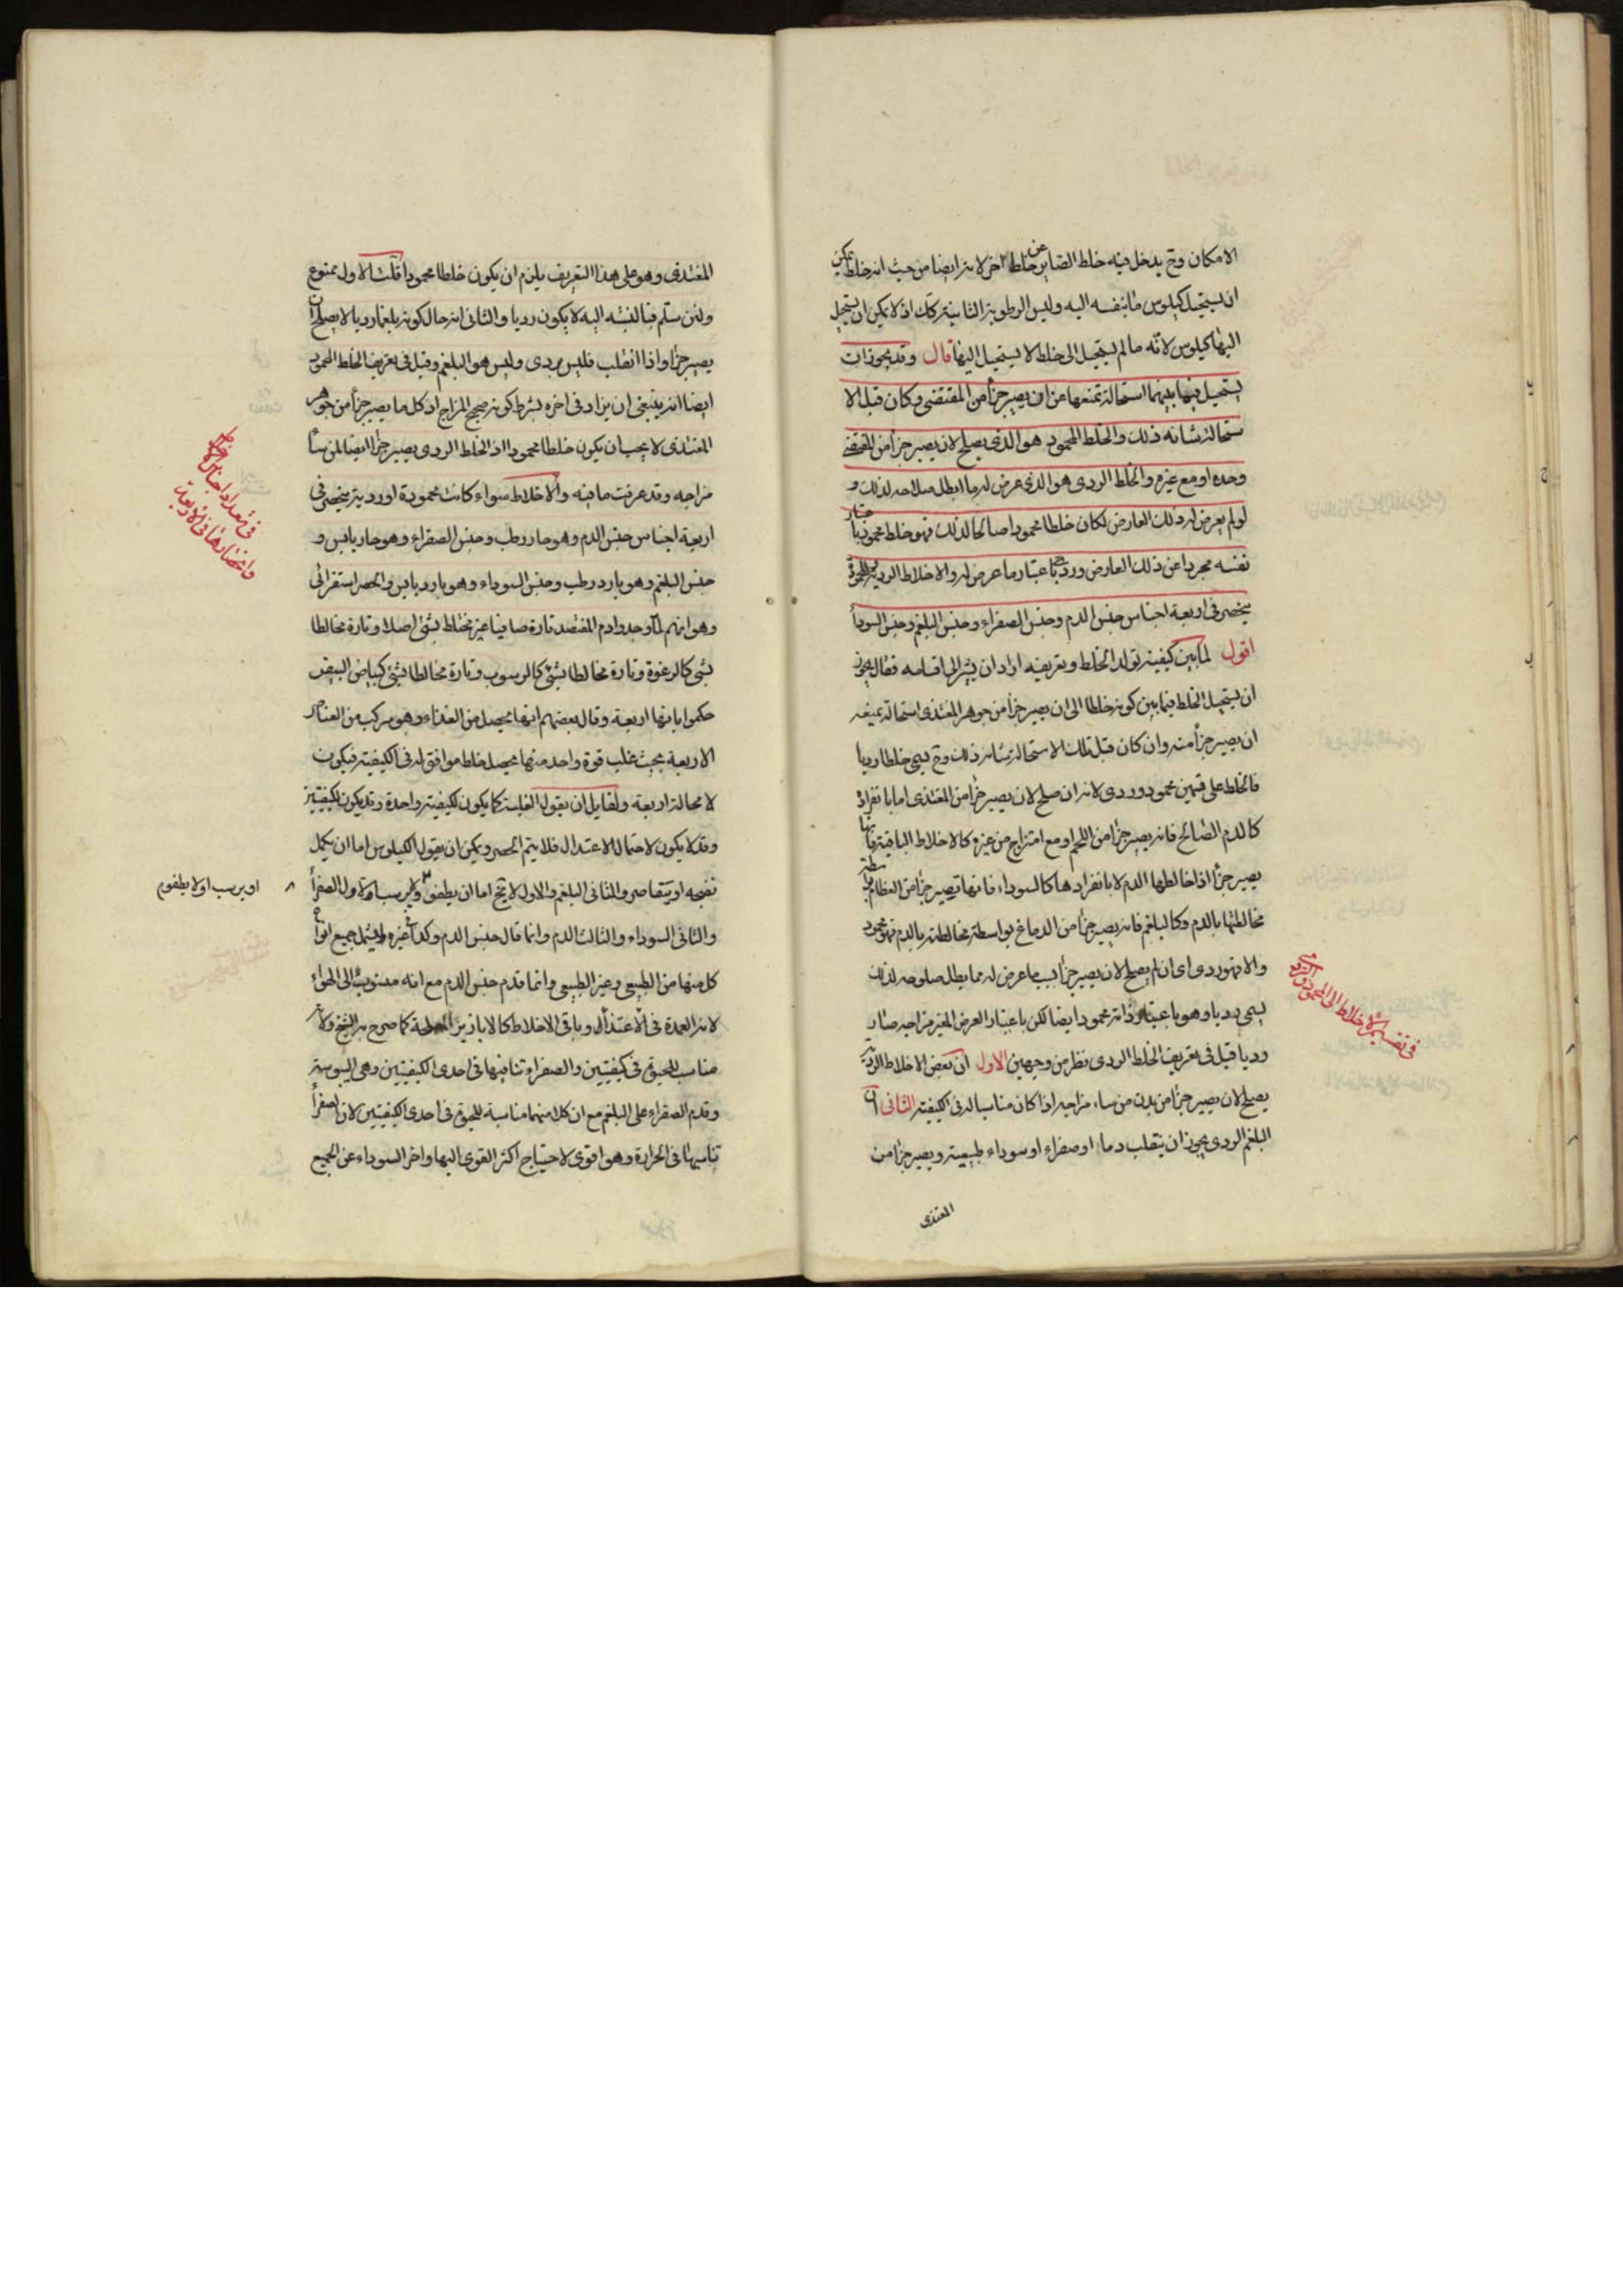 الامكان وح يدخل فيه خلط الصاير عن خلط اخر لانه ايضا من حيث انه خلط يمكن
ان يستحيل كيلوس ما بنفسه اليه وليس الرطوبة الثانية كذلك اذ لا يمكن ان يستحيل
اليها كيلوس لانه ما لم يستحيل الى خلط لا يستحيل اليها قال وقد يجوز ان
يستحيل فيما بينهما استحالة تمنعها من ان يصير جزأ من المغتذى وكان قبل الا
ستحالة شانه ذلك والخلط المحمود هو الذى يصلح لان يصير جزأ من المغتذى
وحده او مع غيره والخلط الردى هو الذى عرض له ما ابطل صلاحه لذلك و
لو لم يعرض له ذلك العارض لكان خلطا محمودا صالحا لذلك فهو خلط محمود باعتبار
نفسه مجردا عن ذلك العارض وردى باعتبار ما عرض له والاخلاط الردية والمحمودة
ينحصر فى اربعة اجناس جنس الدم وجنس الصفراء وجنس البلغم وجنس السودا
اقول لما بين كيفية تولد الخلط وتعريفه اراد ان يشير الى اقسامه فقال يجوز
ان يستحيل الخلط فيما بين كونه خلطا الى ان يصير جزأ من جوهر المغتذى استحالة تمنعه
ان يصير جزأ منه وان كان قبل تلك الاستحالة شانه ذلك وح يسمى خلطا رديا
فالخلط على قسمين محمود وردى لانه ان صلح لان يصير جزأ من المغتذى اما بانفراده
كالدم الصالح فانه يصير جزأ من اللحم او مع امتزاج من غيره كالاخلاط الباقية فانها
يصير جزأ اذا خالطها الدم لا بانفرادها كالسوداء فانها تصير جزأ من العظام بواسطة
مخالطتها بالدم وكالبلغم فانه يصير جزأ من الدماغ بواسطة مخالطته بالدم فهو محمود
والا فهو ردى اى ان لم يصلح لان يصير جزأ بسبب ما عرض له مما يبطل صلوحه لذلك
يسمى رديا وهو باعتبار ذاته محمود ايضا لكن باعتبار العرض المغير مزاجه صار
رديا قيل فى تعريف الخلط الردى نظر من وجهين الاول ان بعض الاخلاط الردية
يصلح لان يصير جزأ من بدن من ساء مزاجه اذا كان مناسبا له فى الكيفية الثانى ان
البلغم الردى يجوز ان ينقلب دما او صفراء او سوداء طبيعية ويصير جزأ من
المغتذى
فى تقسيم الاخلاط الى المحمود والردى
المغتذى وهو على هذا التعريف يلزم ان يكون خلطا محمودا قلت الاول ممنوع
ولئن سلم فبالنسبة اليه لا يكون رديا والثانى انه حال كونه بلغما رديا لا يصلح ان
يصير جزأ واذا انقلب فليس بردى وليس هو البلغم وقيل فى تعريف الخلط المحمود
ايضا انه ينبغى ان يزاد فى اخره بشرط كونه صحيح المزاج اذ كل ما يصير جزأ من جوهر
المغتذى لا يجب ان يكون خلطا محمودا اذ الخلط الردى يصير جزأ ايضا لمن ساء
مزاجه وقد عرفت ما فيه والاخلاط سواء كانت محمودة او ردية ينحصر فى
اربعة اجناس جنس الدم وهو حار رطب وجنس الصفراء وهو حار يابس و
جنس البلغم وهو بارد رطب وجنس السوداء وهو بارد يابس والحصر استقرائى
وهو انهم لما وجدوا دم المفتصد تارة صافيا غير مختلط بشئ اصلا وتارة مخالطا
بشئ كالرغوة وتارة مخالطا بشئ كالرسوب وتارة مخالطا بشئ كبياض البيض
حكموا بانها اربعة وقال بعضهم انها يحصل من الغذاء وهو مركب من العناصر
الاربعة بحيث غلب قوة واحد منها يحصل خلط موافق له فى الكيفية فيكون
لا محالة اربعة ولقايل ان يقول الغلبة كما يكون لكيفية واحدة وقد يكون لكيفيتين
وقد لا يكون لاحتمال الاعتدال فلا يتم الحصر ويمكن ان يقول الكيلوس اما ان يكمل
نضجه او يتقاصر والثانى البلغم والاول لا يخ اما ان يطفو ولا يرسب والاول الصفرأ
والثانى السوداء والثالث الدم وانما قال جنس الدم وكذا فى غيره ليشمل جميع انواع
كل منها من الطبيعى وغير الطبيعى وانما قدم جنس الدم مع انه منسوب الى الهواء
لانه العمدة فى الاغتذاء وباقى الاخلاط كالابازير المصلحة كما صرح به الشيخ ولانه
مناسب للحيوة فى كيفيتين والصفراء تنافيها فى احدى الكيفيتين وهى اليبوسة
وقدم الصفراء على البلغم مع ان كلا منهما مناسبة للحيوة فى احدى الكيفيتين لان الصفرأ
تناسبها فى الحرارة وهو اقوى لاحتياج اكثر القوى اليها واخر السوداء عن الجميع
فى تعداد اجناس الاخلاط
وانحصارها فى الاربعة
او يرسب او لا يطفو